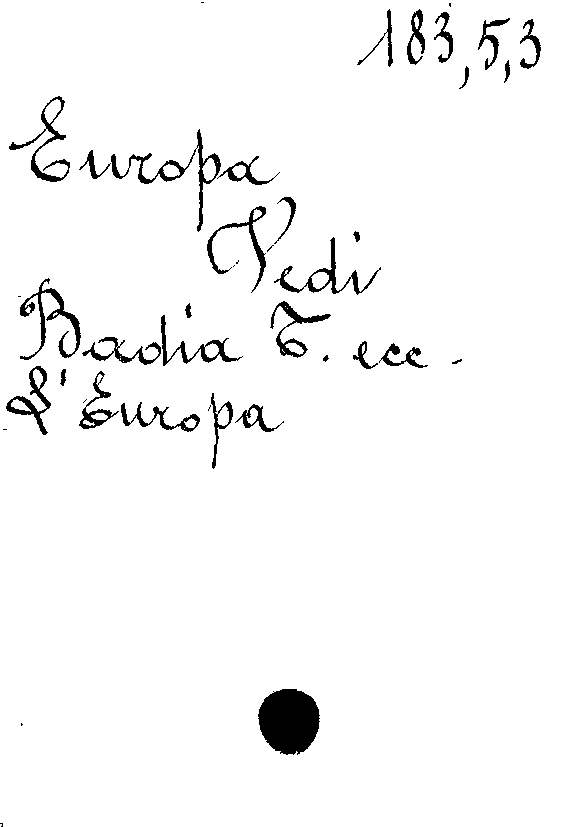 183,5,3
Europa
Vedi
Badia T. ecc.
L'Europa